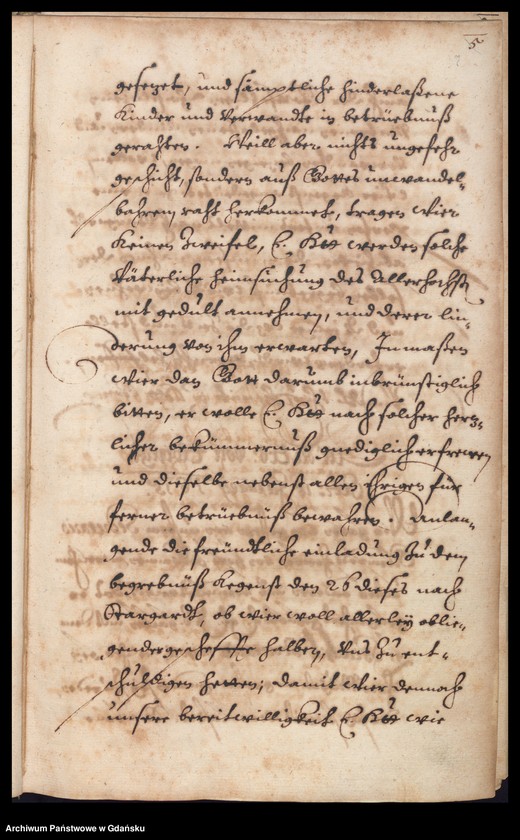 5
gesetzet, und sämptliche hinderlaßene
Kinder und Verwandte in betrüebnüß
gerahten. Weill aber nichts ungefehr
geschicht, sondern auß Gottes unwandel-
bahrem raht herkommet, tragen wier
keinen Zweifel, E. werden solche
Väterliche heimsuchung des Allerhöchst
mit gedult annehmen, und derer lin-
derung von ihm erwarten, Inmaßen
wier dan Gott darumb inbrünstiglich
bitten, er wolle E. nach solcher hertz-
licher bekümmernüß gnediglich erfrewen
und dieselbe nebenst allen ihrigen für
ferner betrüebnüß bewahren. Anlan-
gende die freündtliche einladung Zu dem
begrebnüß kegenst den 26 dieses nach
Stargardt, ob wier woll allerley oblie-
gender geschefffte halben, Uns Zu ent-
schuldigen hetten; damit wier dennoch
unsere bereitwilligkeit E. wie
Archiwum Państwowe w Gdańsku